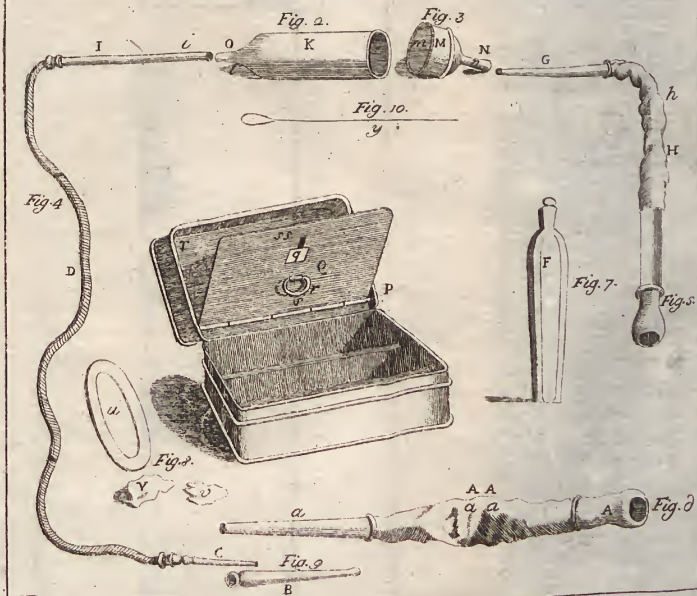 Fig. 2.
Fig. 3
I
i
O
K
m
M
N
G
h
Fig. 10.
y
H
Fig. 4
D
T
ss
q
Q
r
s
P
F
Fig. 7.
Fig. 5.
u
Fig. 8.
v
A A
a
a a
A
C
Fig. 9
B